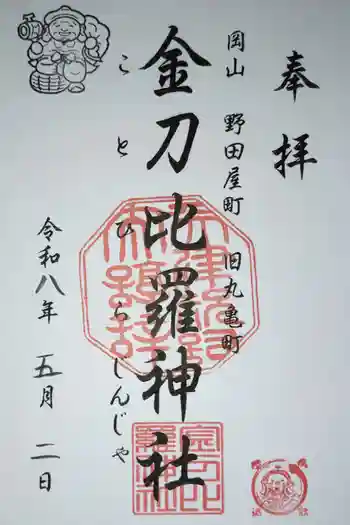 奉拝
岡山 野田屋町 旧丸亀町
金刀比羅神社
ことひらしんじゃ
令和八年 五月 二日